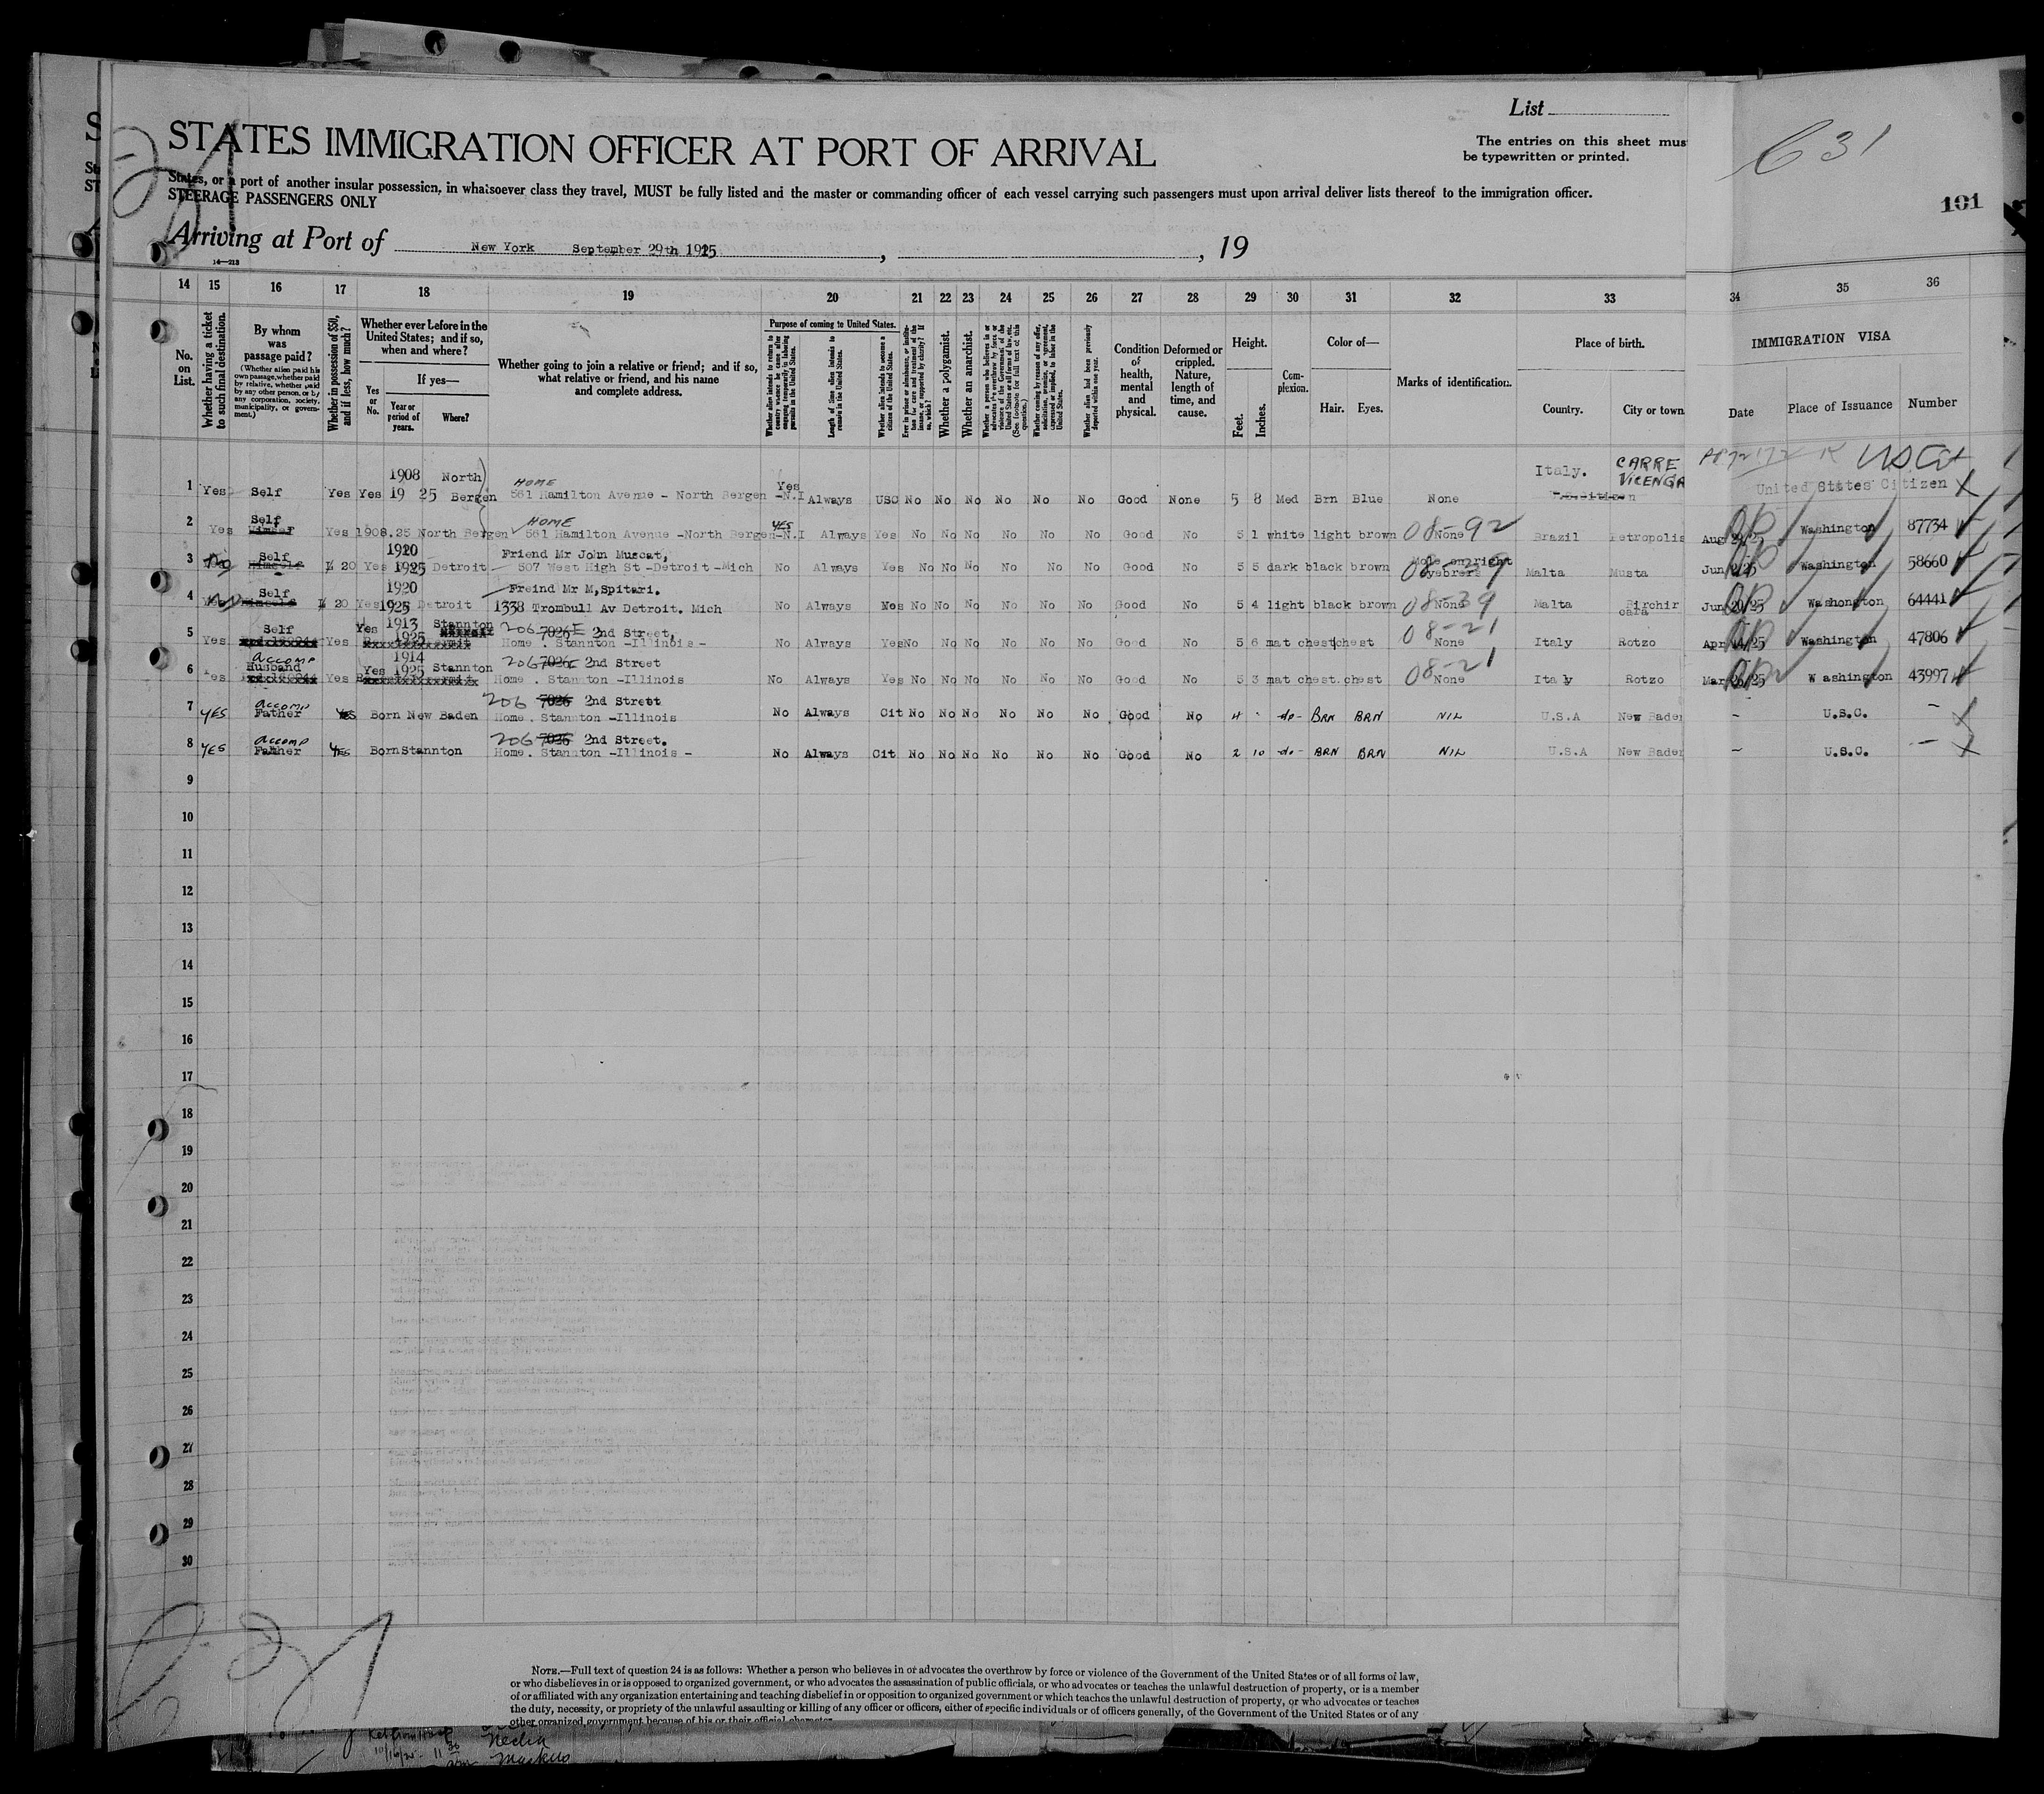 List
STATES IMMIGRATION OFFICER AT PORT OF ARRIVAL
The entries on this sheet mus
be typewritten or printed.
631
101
States, or a port of another insular possession, in whatsoever class they travel, MUST be fully listed and the master or commanding officer of each vessel carrying such passengers must upon arrival deliver lists thereof to the immigration officer.
STEERAGE PASSENGERS ONLY
Arriving at Port of New York September 29th 1925, , 19
14—213
14 15 16 17 18 19 20 21 22 23 24 25 26 27 28 29 30 31 32 33 34 35 36
No. on List.
Whether having a ticket to such final destination.
By whom was passage paid?
(Whether alien paid his own passage, whether paid by relative, whether paid by any other person, or by any corporation, society, municipality, or government.)
Whether in possession of $50, and if less, how much?
Whether ever before in the United States; and if so, when and where?
Yes or No.
If yes—
Year or period of years.
Where?
Whether going to join a relative or friend; and if so, what relative or friend, and his name and complete address.
Purpose of coming to United States.
Whether alien intends to return to country whence he came after engaging temporarily in laboring pursuits in the United States.
Length of time alien intends to remain in the United States.
Whether alien intends to become a citizen of the United States.
Ever in prison or almshouse, or institution for care and treatment of the insane, or supported by charity? If so, which?
Whether a polygamist.
Whether an anarchist.
Whether coming by reason of any offer, solicitation, promise, or agreement, expressed or implied, to labor in the United States.
Whether alien had been previously deported within one year.
Condition of health, mental and physical.
Deformed or crippled. Nature, length of time, and cause.
Height.
Feet. Inches.
Complexion.
Color of—
Hair. Eyes.
Marks of identification.
Place of birth.
Country. City or town
IMMIGRATION VISA
Date Place of Issuance Number
1908 North Italy. CARRE VICENGA US Cit
1 Yes Self Yes Yes 19 25 Bergen HOME 561 Hamilton Avenue - North Bergen -N.I Yes Always USC No No No No No No Good None 5 8 Med Brn Blue None United States Citizen
2 Yes Self Yes 1908.25 North Bergen HOME 561 Hamilton Avenue -North Bergen-N.I YES Always Yes No No No No No No Good No 5 1 white light brown None 08-92 Brazil Petropolis Aug 29/25 Washington 87734
1920 Friend Mr John Muscat, Mole on right
3 No Self 20 Yes 1925 Detroit 507 West High St -Detroit -Mich No Always Yes No No No No No No Good No 5 5 dark black brown Malta Musta Washington 58660
1920 Freind Mr M,Spitari.
4 No Self 20 Yes 1925 Detroit 1338 Trombull Av Detroit. Mich No Always No No No No No No Good No 5 4 light black brown None 08-39 Malta Birchir cara Jun 20/25 Washongton 64441
1913 Stannton 206 7026 E 2nd Street,
5 Yes Self Yes Yes 1925 Home . Stannton -Illinois - No Always Yes No No No No No No Good No 5 6 mat chest chest None 08-21 Italy Rotzo Apr 14/25 Washington 47806
accomp 1914 206 7026 2nd Street
6 Yes Husband Yes Yes 1925 Stannton Home . Stannton -Illinois No Always Yes No No No No No No Good No 5 3 mat chest.chest None 08-21 Italy Rotzo Mar 26/25 Washington 43997
accomp 206 7026 2nd Street
7 YES Father Yes Born New Baden Home. Stannton -Illinois No Always Cit No No No No No No Good No 4 - do- BRN BRN NIL U.S.A New Baden - U.S.C. -
accomp 206 7026 2nd Street.
8 YES Father Yes Born Stannton Home. Stannton -Illinois - No Always Cit No No No No No No Good No 2 10 -do- BRN BRN NIL U.S.A New Baden - U.S.C. -
9
10
11
12
13
14
15
16
17
18
19
20
21
22
23
24
25
26
27
28
29
30
NOTE.—Full text of question 24 is as follows: Whether a person who believes in or advocates the overthrow by force or violence of the Government of the United States or of all forms of law,
or who disbelieves in or is opposed to organized government, or who advocates the assassination of public officials, or who advocates or teaches the unlawful destruction of property, or is a member
of or affiliated with any organization entertaining and teaching disbelief in or opposition to organized government or which teaches the unlawful destruction of property, or who advocates or teaches
the duty, necessity, or propriety of the unlawful assaulting or killing of any officer or officers, either of specific individuals or of officers generally, of the Government of the United States or of any
other organized government because of his or their official character